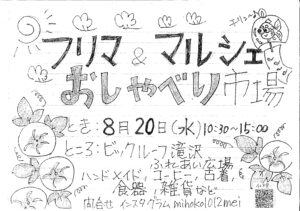 フリマ & マルシェ
おしゃべり市場
とき：8月20日(水) 10:30～15:00
ところ：ビッグルーフ滝沢
ふれあい広場
ハンドメイド，コーヒー，古着，
食器，雑貨など
問合せ インスタグラム mihoko1012mei